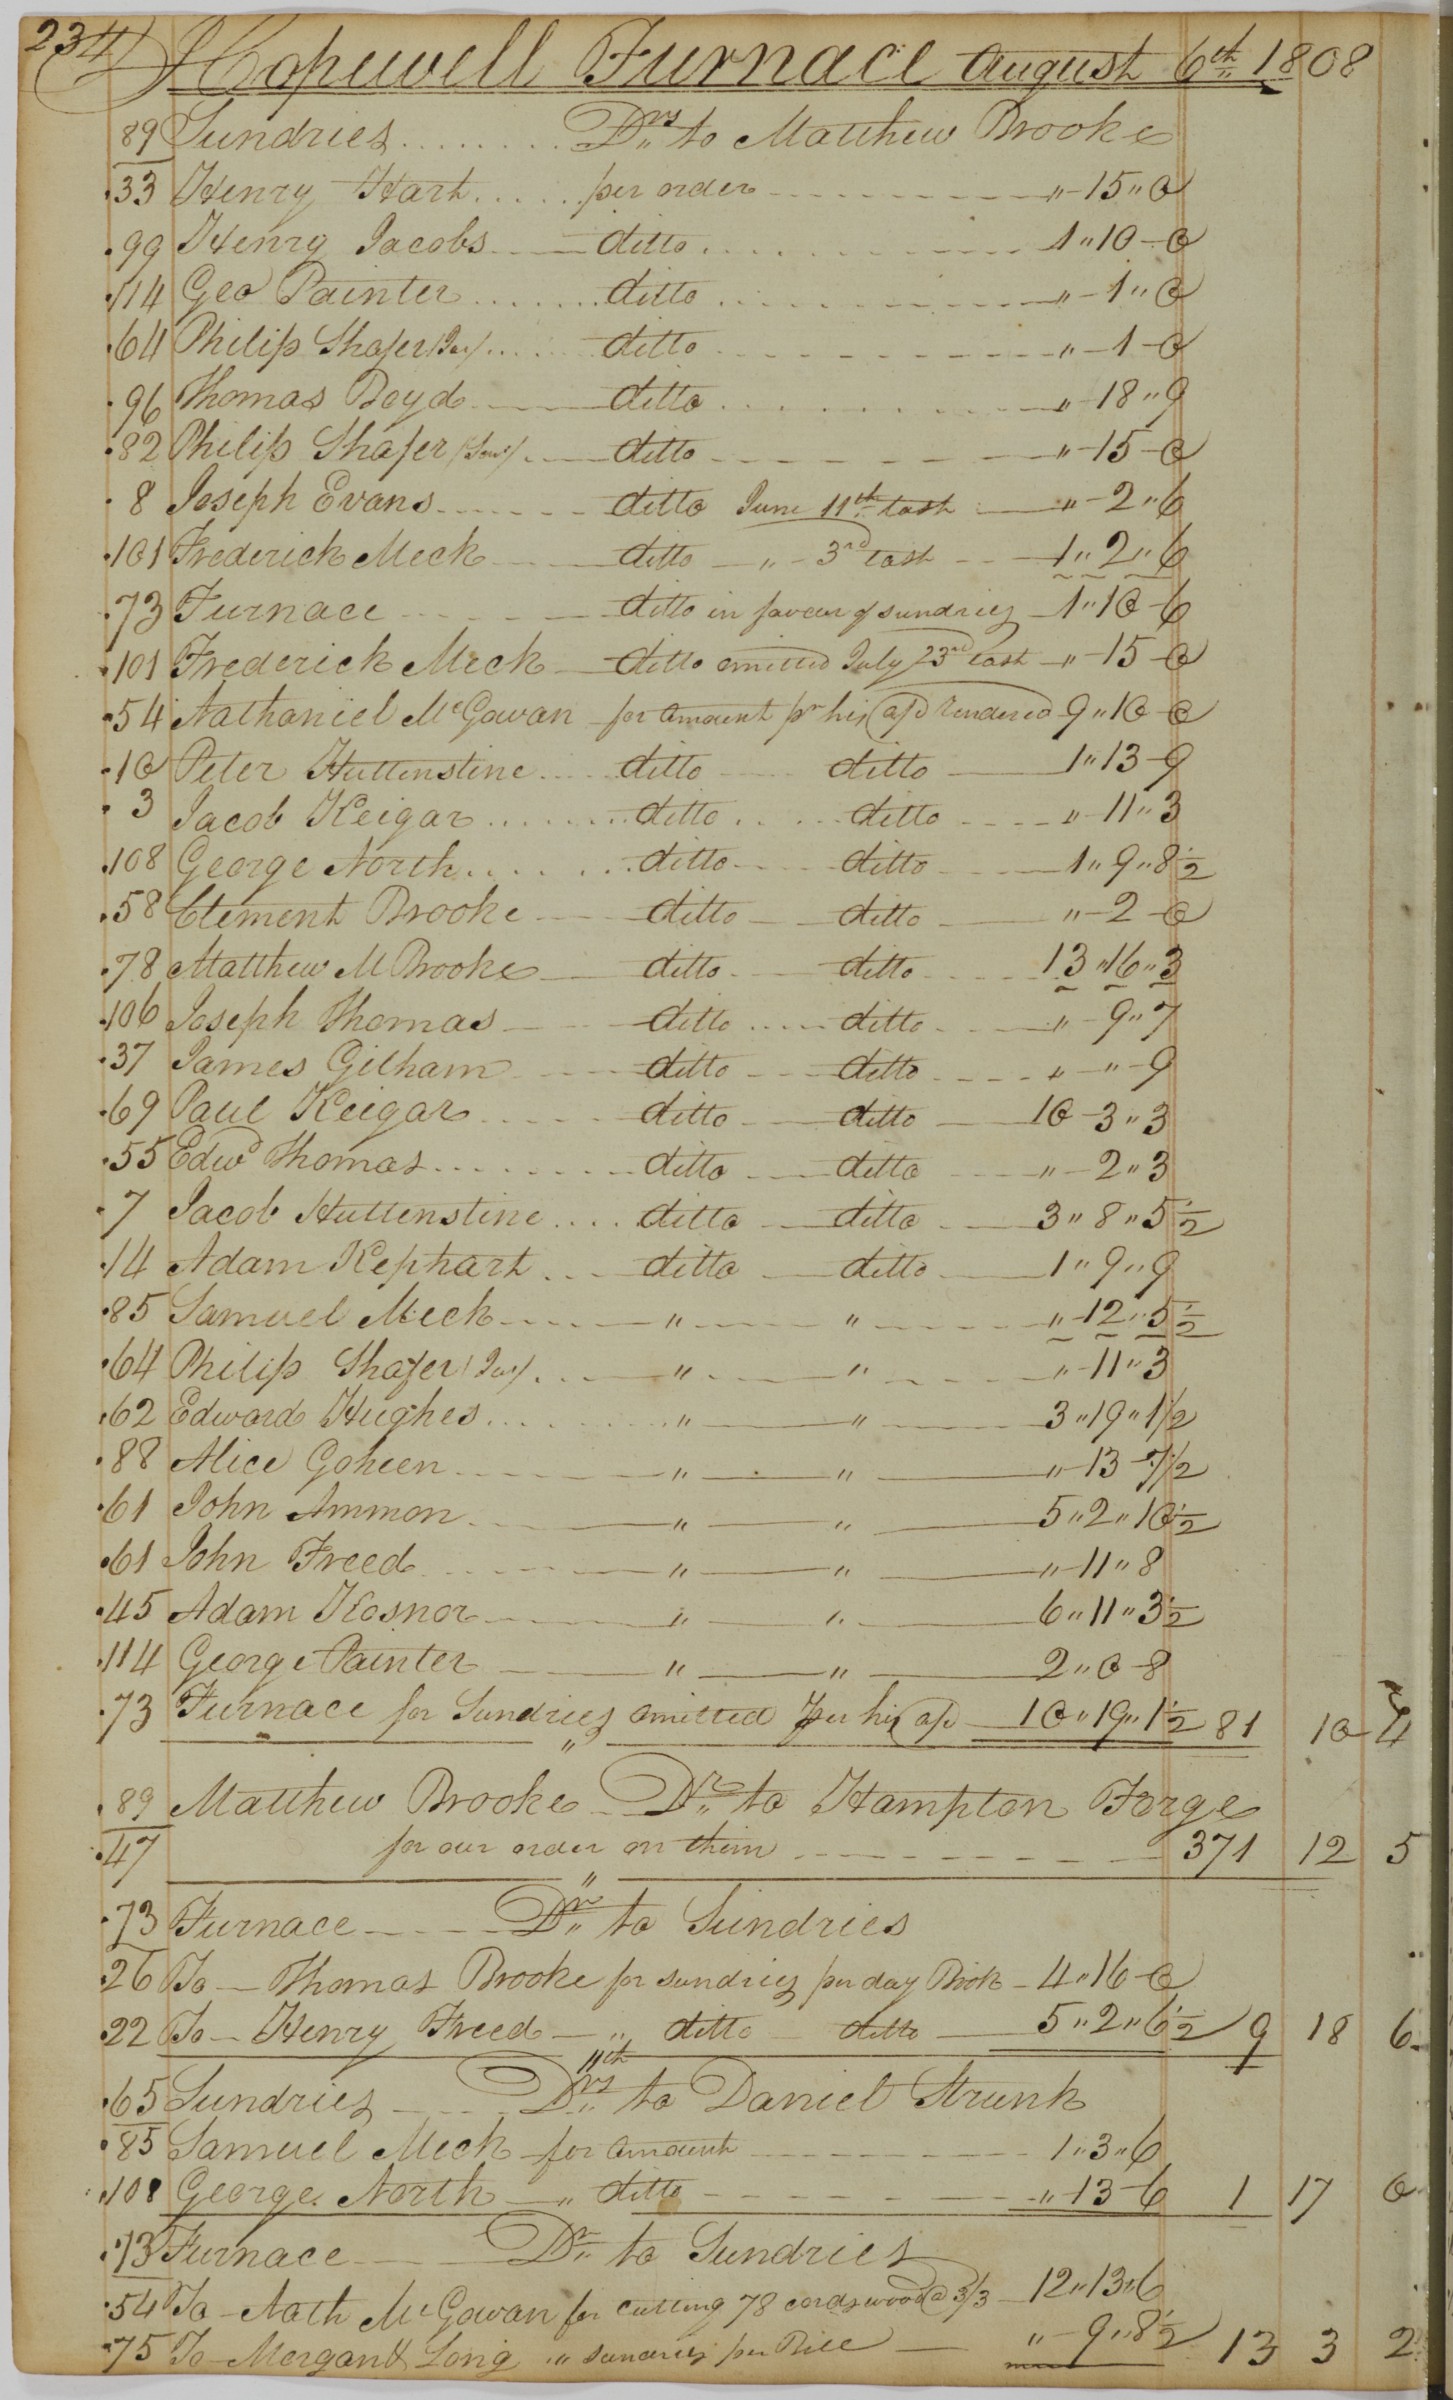 234 Hopewell Furnace August 6th 1808
89 Sundries ........ Drs to Matthew Brooke
33 Henry Hart ..... per order - - - - " - 15 " 0
99 Henry Jacobs - - ditto ........ 1 " 10 - 0
114 Geo Painter ....... ditto ........ " - 1 " 0
64 Philip Shafer (Jur) ..... ditto - - - - " - 1 - 0
96 Thomas Boyd - - ditto ........ " - 18 " 9
82 Philip Shafer (Senr) . - ditto - - - - " - 15 - 0
8 Joseph Evans - - - - ditto June 11th last - " - 2 " 6
101 Frederick Meck - - ditto - " - 3rd last - - 1 " 2 " 6
73 Furnace - - - - ditto in favour of sundries - 1 " 10 - 6
101 Frederick Meck - ditto omitted July 23rd last - " - 15 - 0
54 Nathaniel McGowan for amount pr his a/c rendered 9 " 10 - 0
10 Peter Huttenstine ..... ditto - - ditto - 1 " 13 - 9
3 Jacob Keigar ........ ditto ..... ditto - - " - 11 " 3
108 George North ....... ditto - - ditto - - 1 " 9 " 8 1/2
58 Clement Brooke - - ditto - ditto - " - 2 - 0
78 Matthew M Brooke - ditto - - ditto - - 13 " 16 " 3
106 Joseph Thomas - - ditto ..... ditto - - " - 9 " 7
37 James Gilham - - ditto - - ditto - - " - " - 9
69 Paul Keigar - - - ditto - ditto - 10 - 3 " 3
55 Edwd Thomas ........ ditto - ditto - - " - 2 " 3
7 Jacob Huttenstine .... ditto - ditto - 3 " 8 " 5 1/2
14 Adam Kephart . . - ditto - ditto - 1 " 9 " 9
85 Samuel Meck - - - " - - " - - - " - 12 " 5 1/2
64 Philip Shafer (Jur) . . - " - - " - - - " - 11 " 3
62 Edward Hughes ....... " - " - - 3 " 19 " 1 1/2
88 Alice Goheen - - - " - " - " - 13 - 7 1/2
61 John Ammon - - - " - " - 5 " 2 " 10 1/2
61 John Freed - - - " - " - " - 11 " 8
45 Adam Kosnor - - " - " - 6 " 11 " 3 1/2
114 George Painter - " - " - 2 " 0 - 8
73 Furnace for Sundries omitted per his a/c - 10 " 19 " 1 1/2 81 10 4
"
89 Matthew Brooke Dr to Hampton Forge
47 for our order on them - - - - 371 12 5
"
73 Furnace - - - Dr to Sundries
26 To - Thomas Brooke for sundries per day Book - 4 " 16 - 0
22 To - Henry Freed - " ditto - ditto - 5 " 2 " 6 1/2 9 18 6
11th
65 Sundries - - - Drs to Daniel Strunk
85 Samuel Meck - for amount - - - - 1 " 3 " 6
108 George North - " ditto - - - - " 13 - 6 1 17 0
73 Furnace - - - Dr to Sundries
54 To - Nath McGowan for cutting 78 cords wood @ 3/3 - 12 " 13 " 6
75 To - Morgan & Long " sundries per Bill - " - 9 " 8 1/2 13 3 2